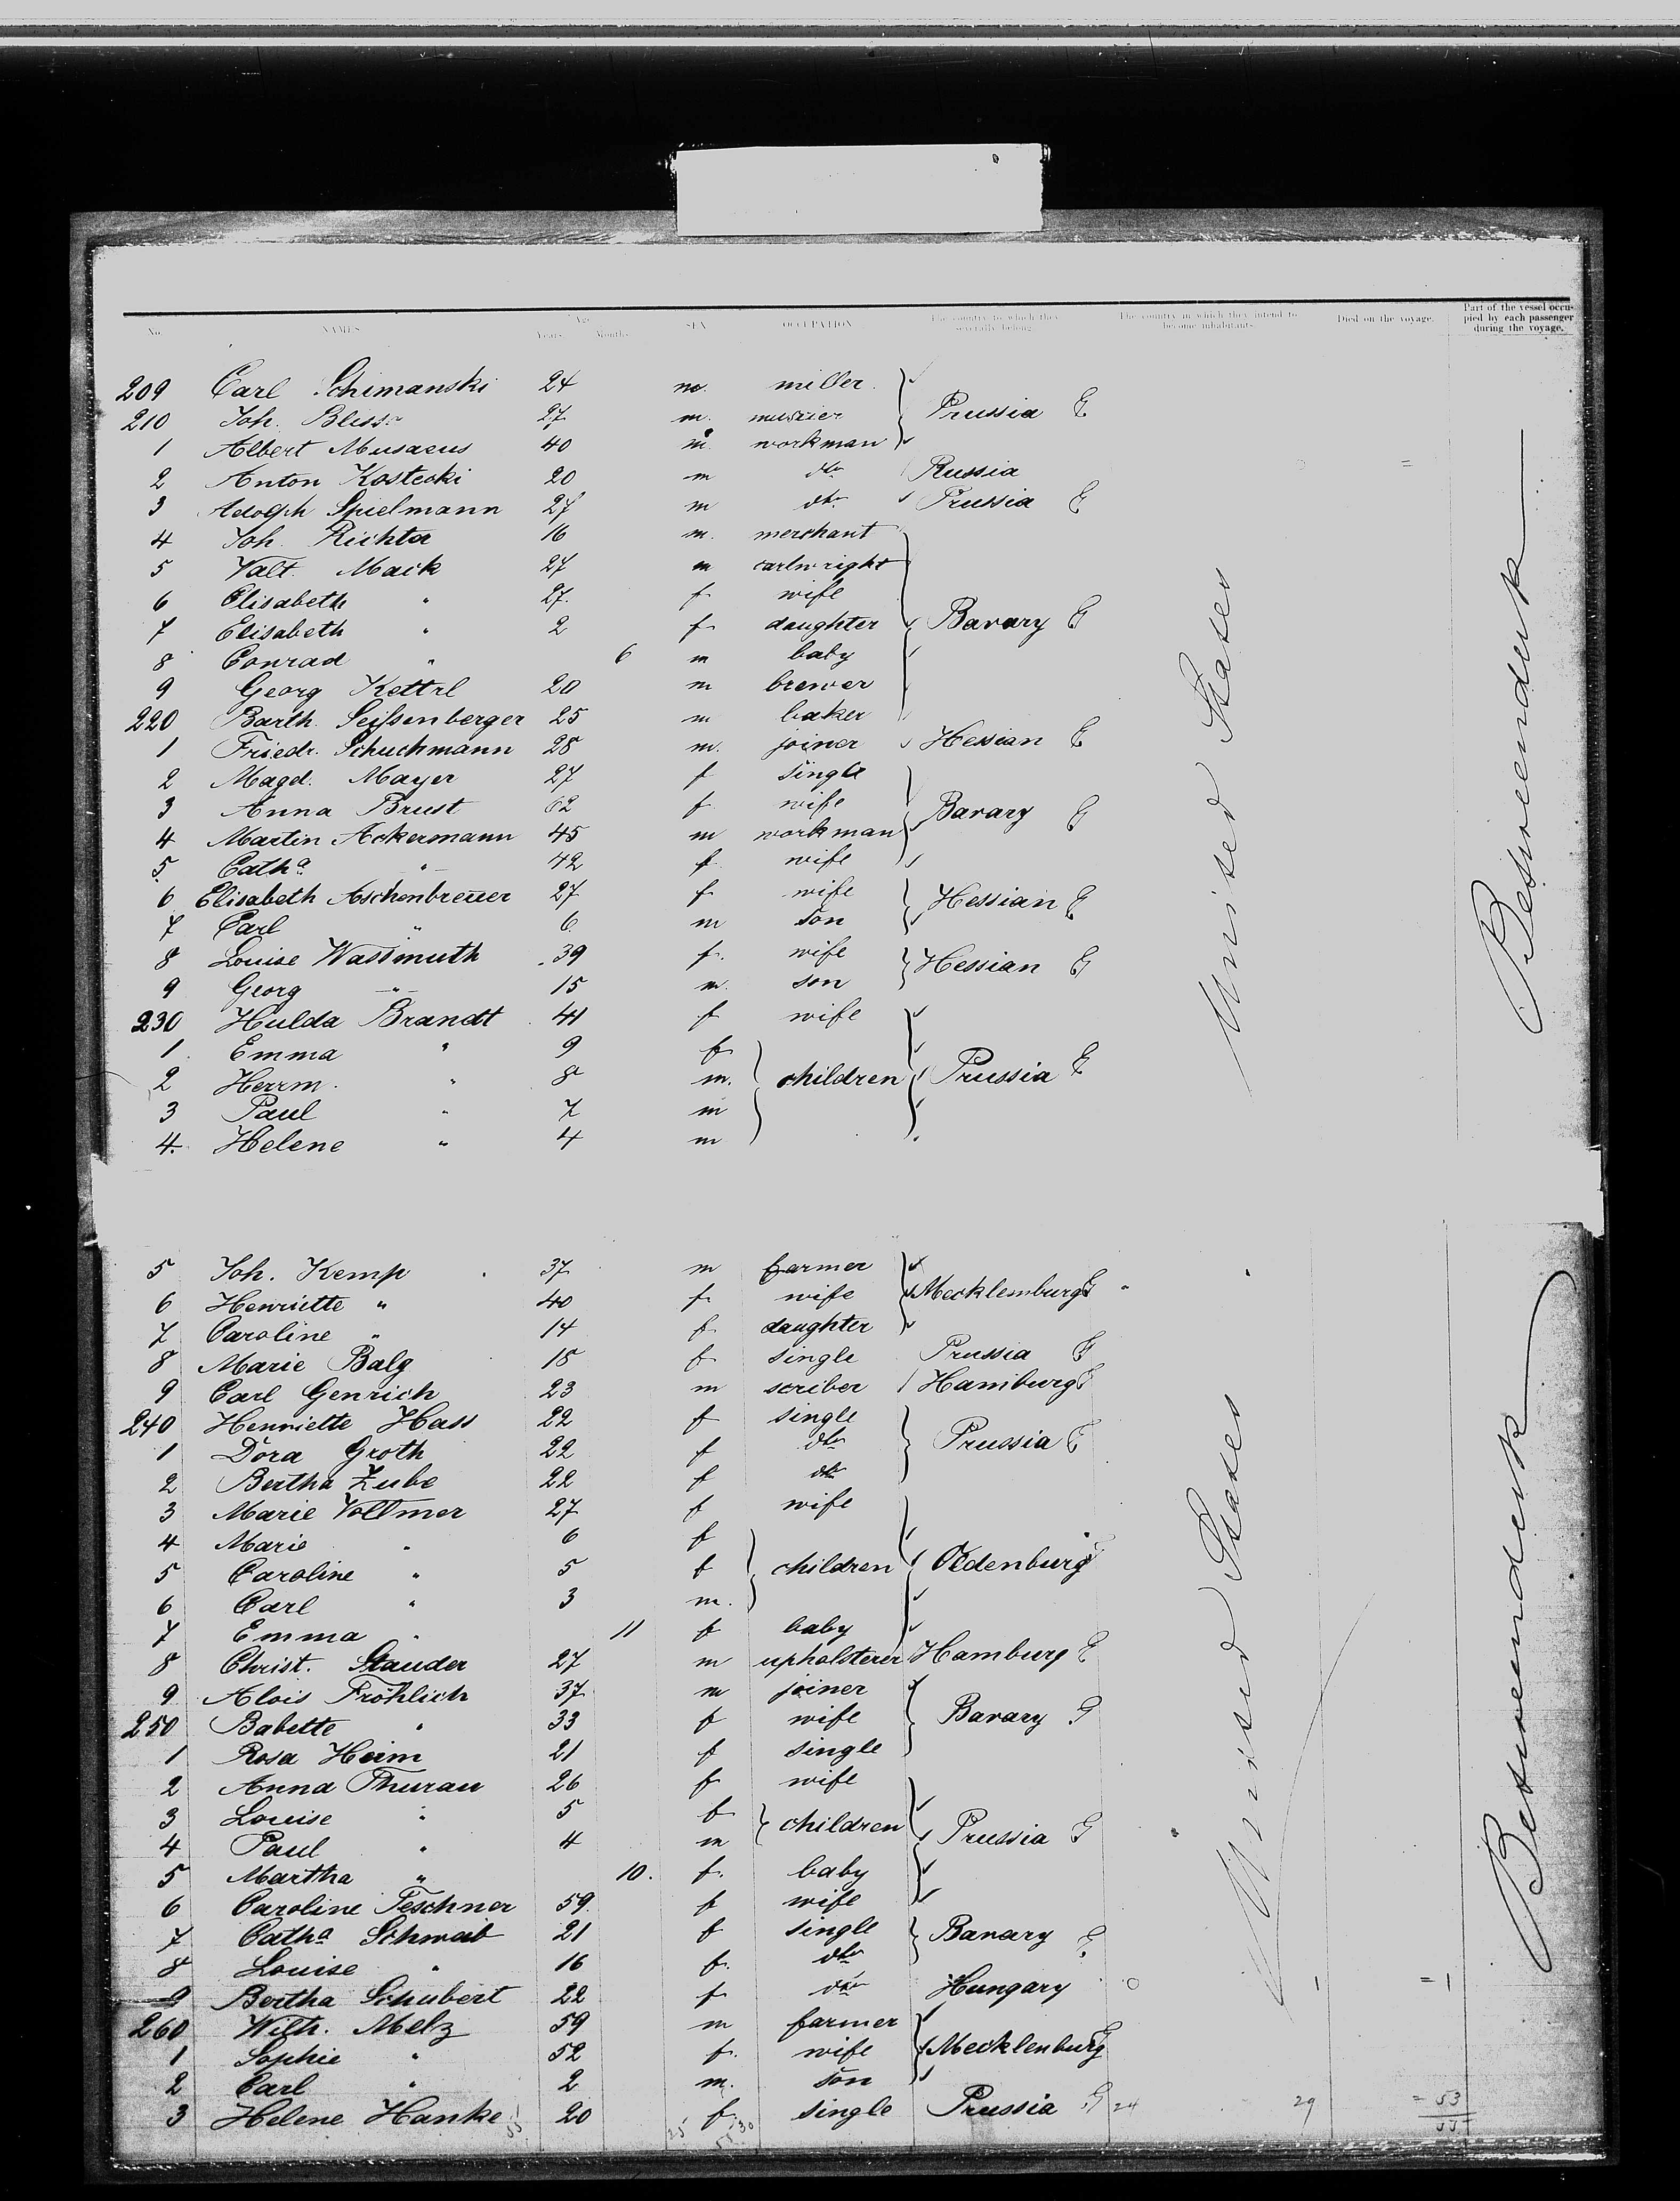 No. NAMES Age Years. Months. SEX OCCUPATION The country to which they severally belong. The country in which they intend to become inhabitants. Died on the voyage. Part of the vessel occupied by each passenger during the voyage.
209 Carl Schimanski 24 m. miller
210 Joh. Bliss 27 m. Prussia G
1 Albert Musaeus 40 m. workman
2 Anton Kostecki 20 m do Russia
3 Adolph Spielmann 27 m do. Prussia G
4 Joh. Richter 16 m. merchant
5 Valt. Mack 27 m cartwright
6 Elisabeth " 27. f wife
7 Elisabeth " 2 f daughter Bavary G
8 Conrad " 6 m baby
9 Georg Kettrl 20 m brewer
220 Barth. Seissenberger 25 m baker
1 Friedr. Schuchmann 28 m. joiner Hessian G
2 Magd. Mayer 27 f single
3 Anna Brust 62 f wife Bavary G
4 Martin Ackermann 45 m workman
5. Catha " 42 f wife
6 Elisabeth Aschenbrenner 27 f wife Hessian G
7 Carl " 6 m son
8 Louise Wassmuth 39 f. wife Hessian G
9 Georg " 15 m. son
230 Hulda Brandt 41 f wife
1 Emma " 9 f
2 Herrm. " 8 m. children Prussia G
3 Paul " 7 m
4. Helene " 4 m
United States
Betweendeck
5 Joh. Kemp 37 m farmer
6 Henriette " 40 f wife Mecklemburg G
7 Caroline " 14 f daughter
8 Marie Balg 18 f single Prussia G
9 Carl Genrich 23 m scriber Hamburg G
240 Henriette Hass 22 f single
1 Dora Groth 22 f do Prussia G
2 Bertha Zube 22 f do
3 Marie Vollmer 27 f wife
4 Marie " 6 f
5 Caroline " 5 f children Oldenburg G
6 Carl " 3 m.
7 Emma " 11 f baby
8 Christ. Stauder 27 m upholsterer Hamburg G
9 Alois Fröhlich 37 m joiner
250 Babette " 33 f wife Bavary G
1 Rosa Heim 21 f single
2 Anna Thurau 26 f wife
3 Louise " 5 f children
4 Paul " 4 m Prussia G
5 Martha " 10. f. baby
6 Caroline Teschner 59 f wife
7 Catha Schwab 21 f single Bavary G
8 Louise " 16 f. do
9 Bertha Schubert 22 f do Hungary 0 1 = 1
260 Wilh. Melz 59 m farmer
1 Sophie " 52 f. wife Mecklenburg G
2 Carl " 2 m. son
3 Helene Hanke 20 f single Prussia G 24 29 = 53
55 25 30 55
United States
Betweendeck